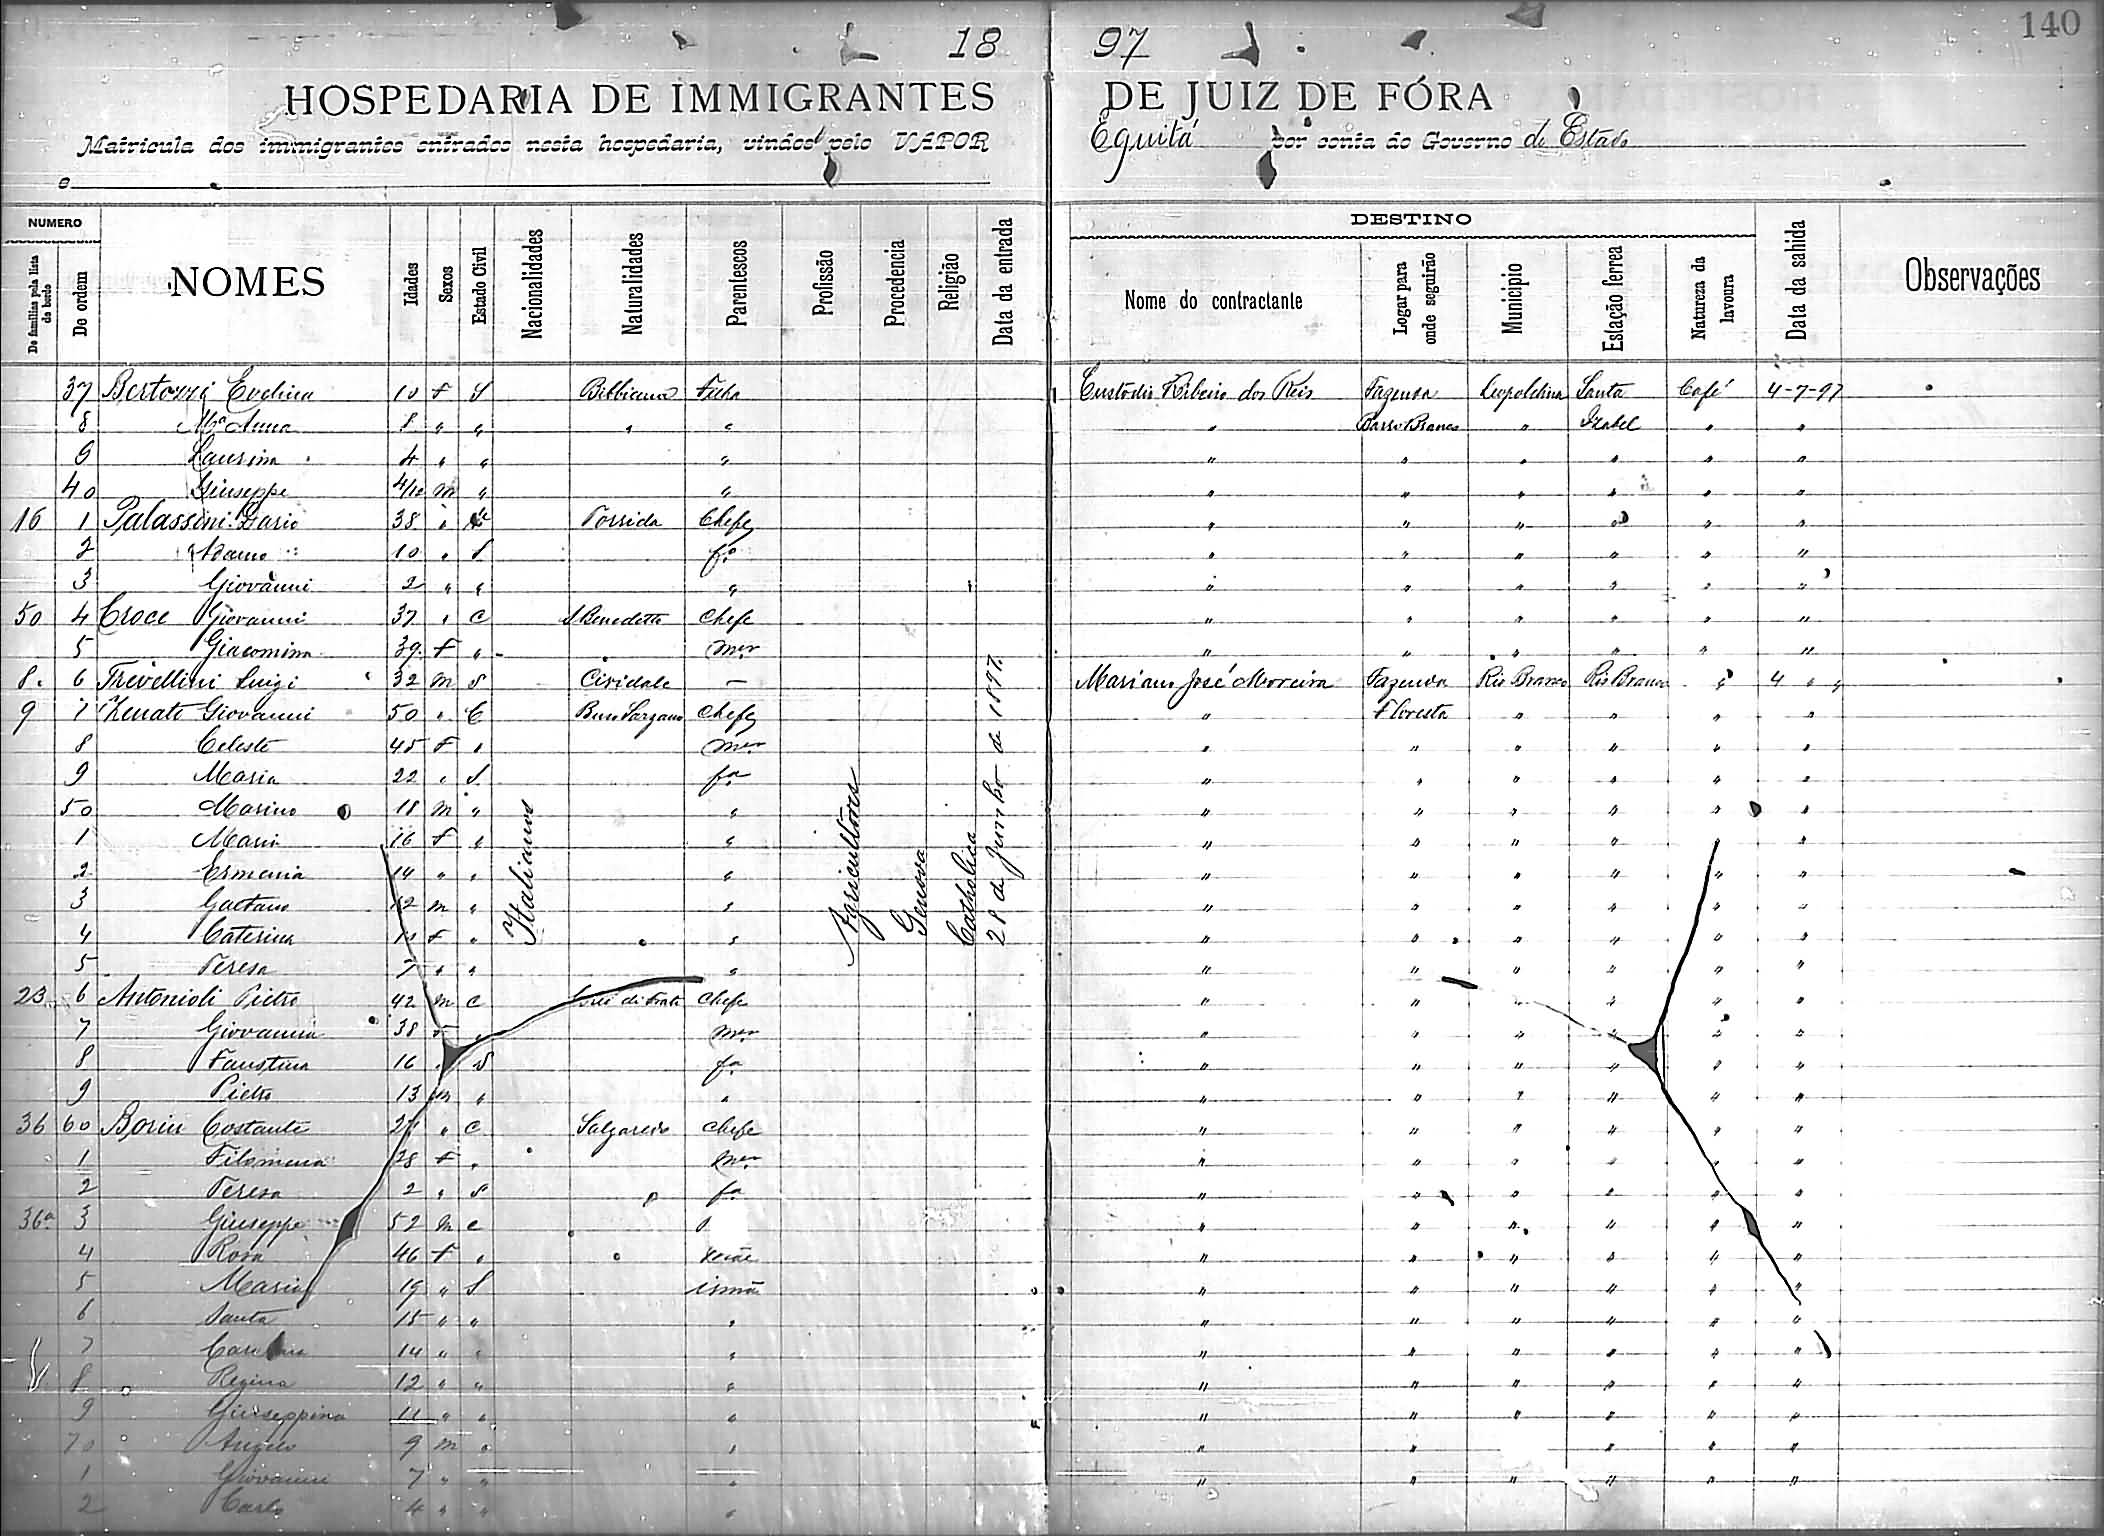 140
18 97
HOSPEDARIA DE IMMIGRANTES DE JUIZ DE FÓRA
Matricula dos immigrantes entrados nesta hospedaria, vindos pelo VAPOR Equitá por conta do Governo do Estado
e
NUMERO DESTINO
De familias pela lista de bordo De ordem NOMES Idades Sexos Estado Civil Nacionalidades Naturalidades Parentescos Profissão Procedencia Religião Data da entrada Nome do contractante Logar para onde seguirão Municipio Estação ferrea Natureza da lavoura Data da sahida Observações
37 Bertozzi Evelina 10 F S Bibbiana Filha Custodio Ribeiro dos Reis Fazenda Leopoldina Santa Café 4-7-97
8 Mª Anna 8 " " " " " Barro Branco " Izabel " "
9 Laurina 4 " " " " " " " " "
40 Giuseppe 4/12 M " " " " " " " "
16 1 Palassini Dario 38 " Chefe " " " " " "
2 Adamo 10 " S fº " " " " " "
3 Giovanni 2 " " " " " " " " "
50 4 Croce Giovanni 37 " C S Benedetto Chefe " " " " " "
5 Giacomina 39 F " mer " " " " " "
8 6 Trevellini Luigi 32 M S Cividale — Mariano José Moreira Fazenda Rio Branco Rio Branco " 4 " "
9 7 Zenato Giovanni 50 " C Chefe " Floresta " " " "
8 Celeste 45 F " mer " " " " " "
9 Maria 22 " S fª " " " " " "
50 Marino 18 M " " " " " " " "
1 Maria 16 F " " " " " " " "
2 Ermenia 14 " " " " " " " " "
3 Gaetano 12 M " " " " " " " "
4 Caterina F " " " " " " " "
5 Teresa 7 " " " " " " " " "
Italianos Agricultores Genova Catholica 28 de Junho de 1897
23 6 Antonioli Pietro 42 M C Chefe " " " " " "
7 Giovanna 38 F mer " " " " " "
8 Faustina 16 " S fª " " " " " "
9 Pietro 13 M " " " " " " " "
36 60 Borin Costante " C Salgaredo Chefe " " " " " "
1 Filomena 28 F " mer " " " " " "
2 Teresa 2 " S fª " " " " " "
36ª 3 Giuseppe 52 M C " " " " " "
4 Rosa 46 F " " " " " " "
5 Maria 19 " S irmã " " " " " "
6 Santa 15 " " " " " " " " "
7 14 " " " " " " " " "
8 Regina 12 " " " " " " " " "
9 Giuseppina 11 " " " " " " " " "
70 Angelo 9 M " " " " " " "
1 Giovanni 7 " " " " " " " " "
2 Carlo 4 " " "